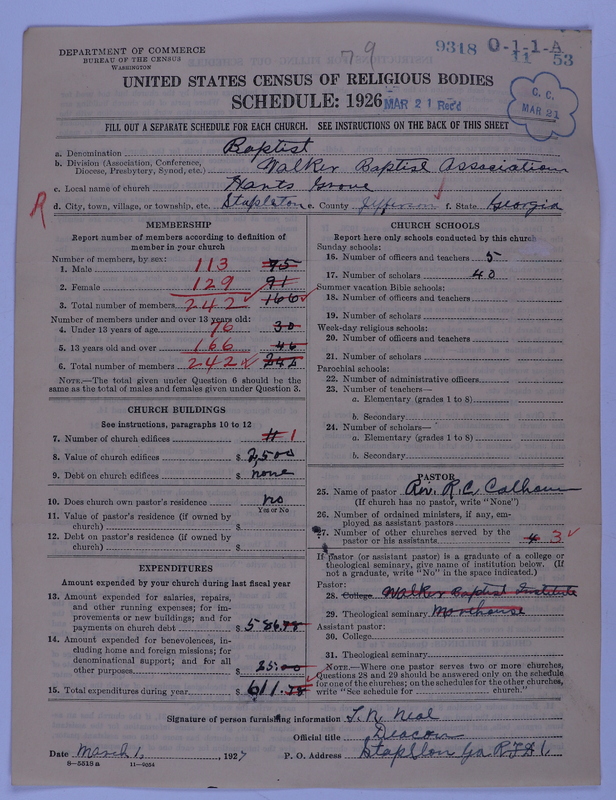 DEPARTMENT OF COMMERCE
BUREAU OF THE CENSUS
WASHINGTON
79
9318 0-1-1-A
11 53
UNITED STATES CENSUS OF RELIGIOUS BODIES
SCHEDULE: 1926
MAR 21 Rec'd
C. C.
MAR 21
FILL OUT A SEPARATE SCHEDULE FOR EACH CHURCH. SEE INSTRUCTIONS ON THE BACK OF THIS SHEET
a. Denomination Baptist
b. Division (Association, Conference, Diocese, Presbytery, Synod, etc.) Walker Baptist Association
c. Local name of church Hants Grove
R d. City, town, village, or township, etc. Stapleton e. County Jefferson f. State Georgia
MEMBERSHIP
Report number of members according to definition of
member in your church
Number of members, by sex:
1. Male 113 75
2. Female 129 91
3. Total number of members 242 166
Number of members under and over 13 years old:
4. Under 13 years of age 76 30
5. 13 years old and over 166 46
6. Total number of members 242 242
NOTE.—The total given under Question 6 should be the
same as the total of males and females given under Question 3.
CHURCH BUILDINGS
See instructions, paragraphs 10 to 12
7. Number of church edifices 1
8. Value of church edifices $ 2,500
9. Debt on church edifices $ none
10. Does church own pastor's residence no
Yes or No
11. Value of pastor's residence (if owned by
church) $
12. Debt on pastor's residence (if owned by
church) $
EXPENDITURES
Amount expended by your church during last fiscal year
13. Amount expended for salaries, repairs,
and other running expenses; for im-
provements or new buildings; and for
payments on church debt $ 586.78
14. Amount expended for benevolences, in-
cluding home and foreign missions; for
denominational support; and for all
other purposes $ 25.00
15. Total expenditures during year $ 611.78
CHURCH SCHOOLS
Report here only schools conducted by this church
Sunday schools:
16. Number of officers and teachers 5
17. Number of scholars 40
Summer vacation Bible schools:
18. Number of officers and teachers
19. Number of scholars
Week-day religious schools:
20. Number of officers and teachers
21. Number of scholars
Parochial schools:
22. Number of administrative officers
23. Number of teachers—
a. Elementary (grades 1 to 8)
b. Secondary
24. Number of scholars—
a. Elementary (grades 1 to 8)
b. Secondary
PASTOR
25. Name of pastor Rev. R. C. Calhoun
(If church has no pastor, write "None")
26. Number of ordained ministers, if any, em-
ployed as assistant pastors
27. Number of other churches served by the
pastor or his assistants 4 3
If pastor (or assistant pastor) is a graduate of a college or
theological seminary, give name of institution below. (If
not a graduate, write "No" in the space indicated.)
Pastor:
28. College Walker Baptist Institute
29. Theological seminary Morehouse
Assistant pastor:
30. College
31. Theological seminary
NOTE.—Where one pastor serves two or more churches,
Questions 28 and 29 should be answered only on the schedule
for one of the churches; on the schedules for the other churches,
write "See schedule for ______ church."
Signature of person furnishing information T. N. Neal
Official title Deacon
Date March 1, 1927 P. O. Address Stapllon Ga RFD 1.
8—5518 a 11—9054